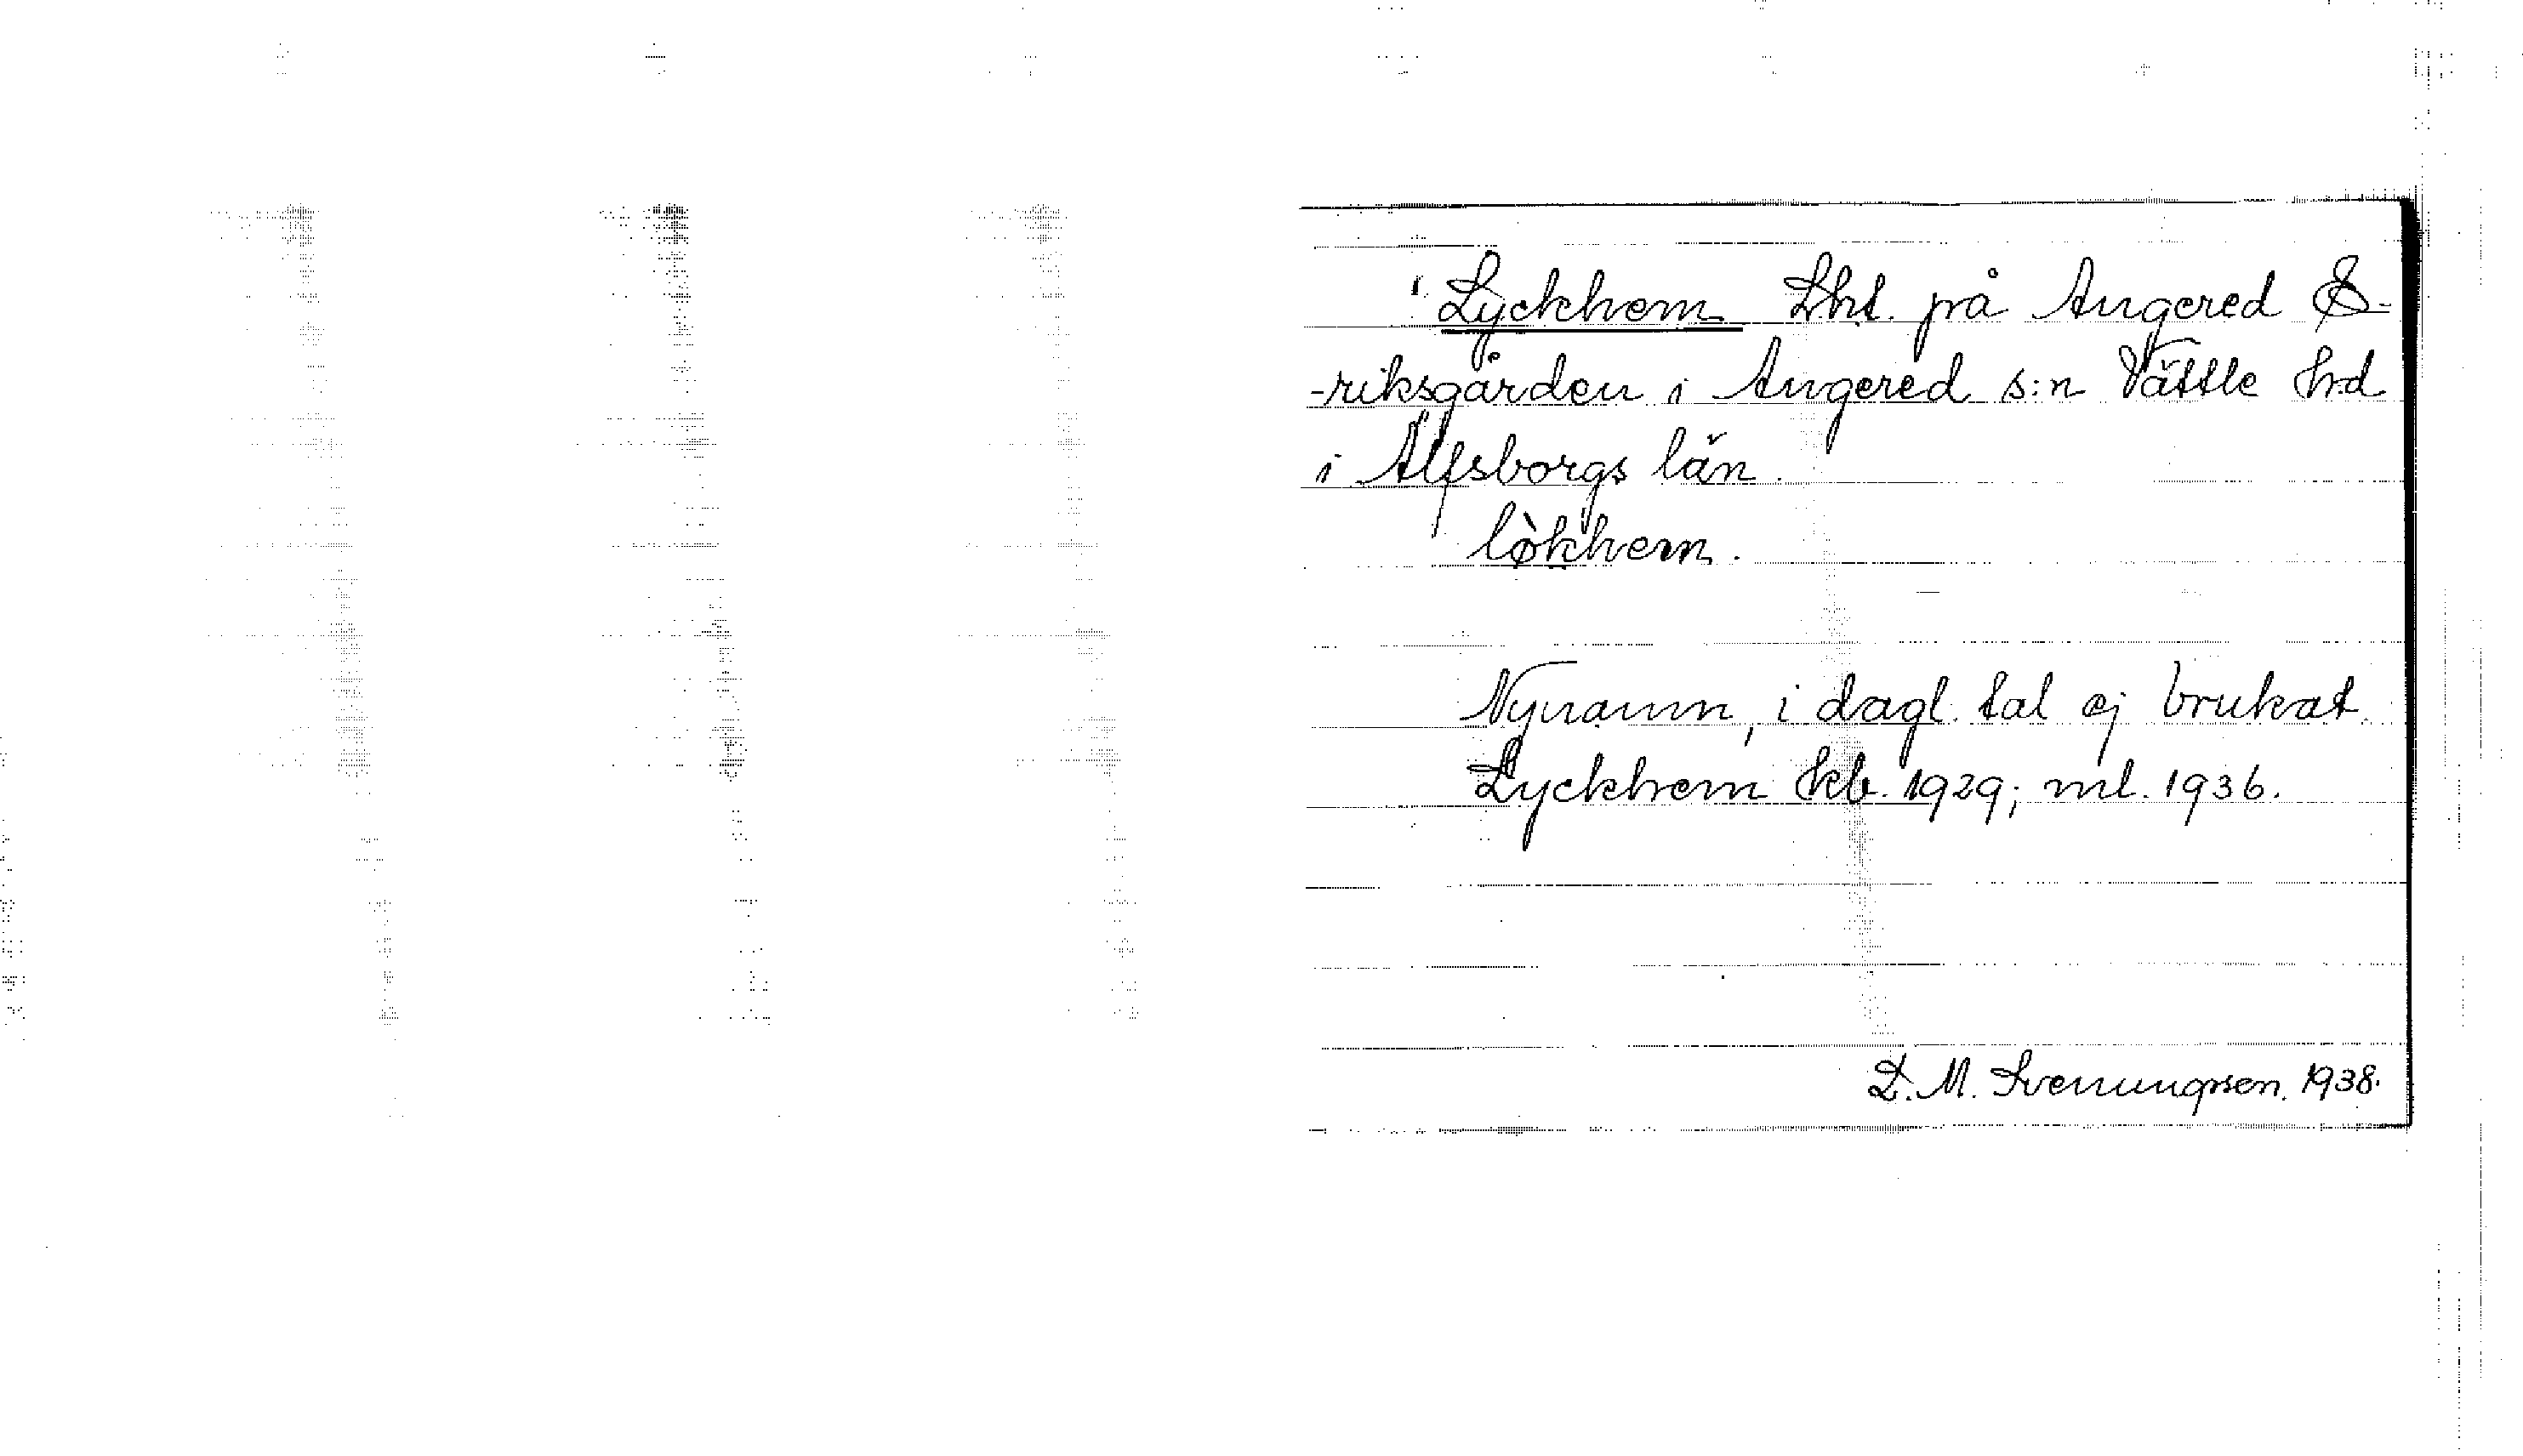 Lyckhem Lht. på Angered E-
-riksgården i Angered s:n Vättle hd
i Älfsborgs län.
lò̜khem.
Nynamn, i dagl. tal ej brukat.
Lyckhem kb. 1929; ml. 1936.
D. M. Svenungsson. 1938.